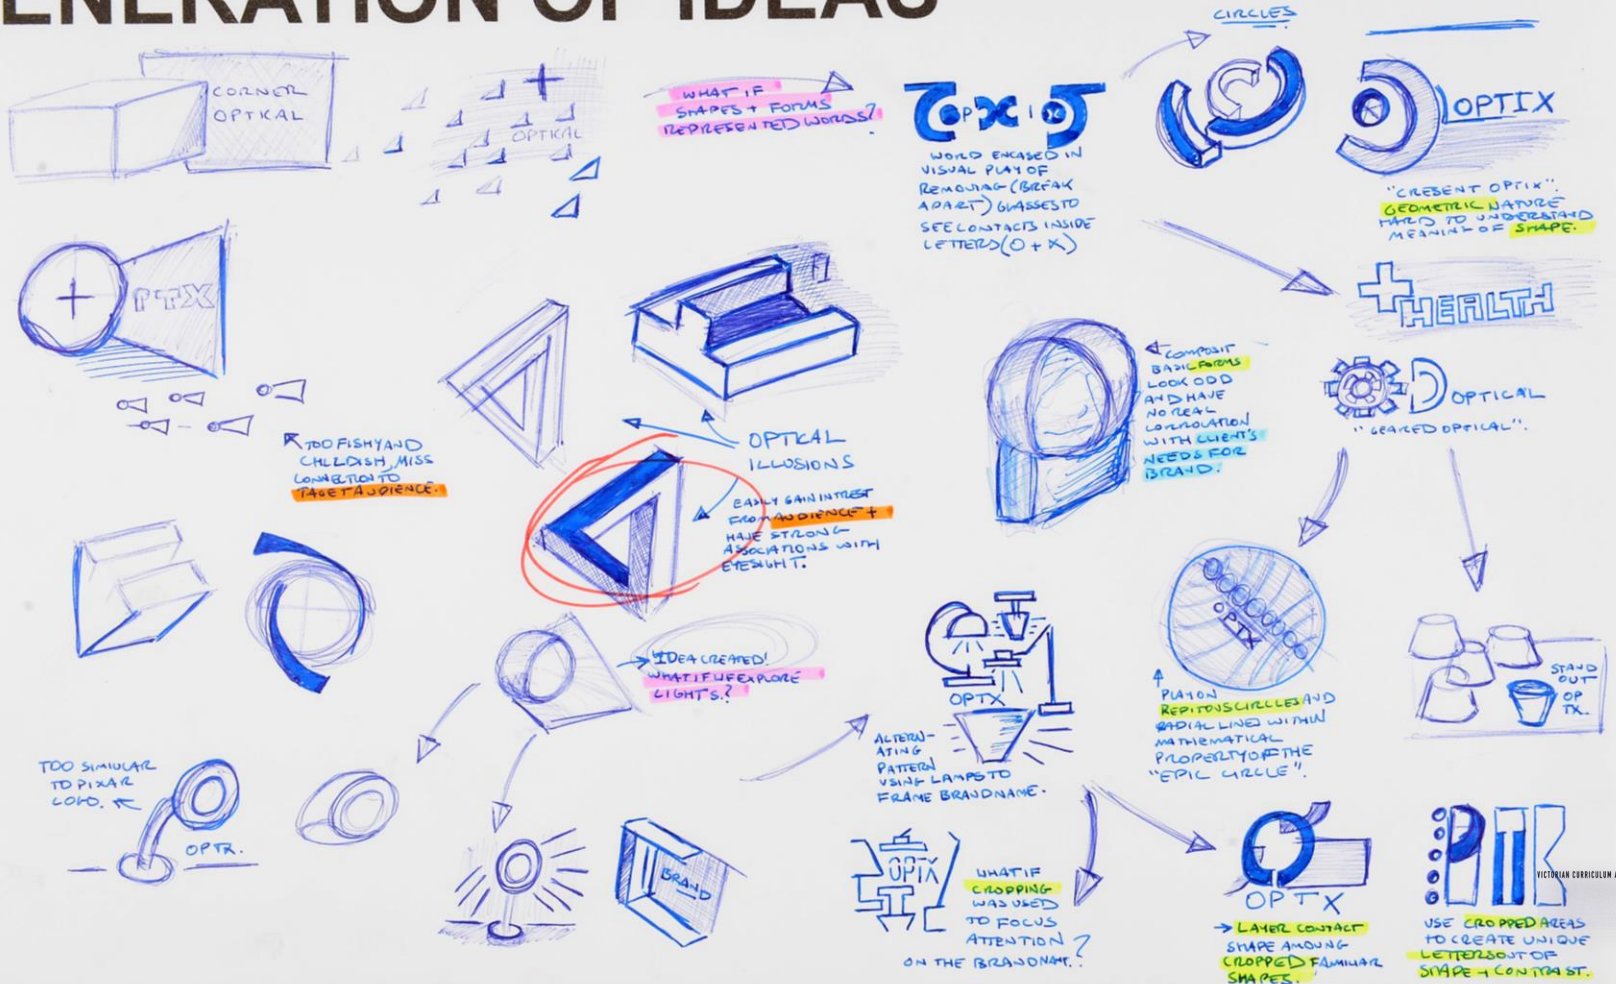 ENERATION OF IDEAS
CORNER
OPTICAL
OPTICAL
WHAT IF
SHAPES + FORMS
REPRESENTED WORDS?
OPXIO
WORLD ENCASED IN
VISUAL PLAY OF
REMOVING (BREAK
APART) GLASSES TO
SEE CONTACTS INSIDE
LETTERS (O + X)
CIRCLES
OPTIX
"CRESENT OPTIX".
GEOMETRIC NATURE
HARD TO UNDERSTAND
MEANING OF SHAPE.
PTX
TOO FISHY AND
CHILDISH, MISS
CONNECTION TO
TAGET AUDIENCE.
OPTICAL
ILLUSIONS
EASILY GAIN INTREST
FROM AUDIENCE +
HAVE STRONG
ASSOCIATIONS WITH
EYESIGHT.
COMPOSIT
BASIC FORMS
LOOK ODD
AND HAVE
NO REAL
CORROLATION
WITH CLIENT'S
NEEDS FOR
BRAND.
+HEALTH
OPTICAL
"GEARED OPTICAL".
IDEA CREATED!
WHAT IF WE EXPLORE
LIGHTS?
OPTX
ALTERN-
ATING
PATTERN
USING LAMPS TO
FRAME BRANDNAME.
OPTX
PLAY ON
REPITONS CIRCLES AND
RADIAL LINES WITHIN
MATHEMATICAL
PROPERTY OF THE
"EPIC CIRCLE".
STAND
OUT
OP
TX.
TOO SIMIULAR
TO PIXAR
LOGO.
OPTX.
BRAND
OPTX
WHAT IF
CROPPING
WAS USED
TO FOCUS
ATTENTION
ON THE BRANDNAME?
OPTX
→ LAYER CONTACT
SHAPE AMOUNG
CROPPED FAMILIAR
SHAPES.
VICTORIAN CURRICULUM A
USE CROPPED AREAS
TO CREATE UNIQUE
LETTERS OUT OF
SHAPE + CONTRAST.